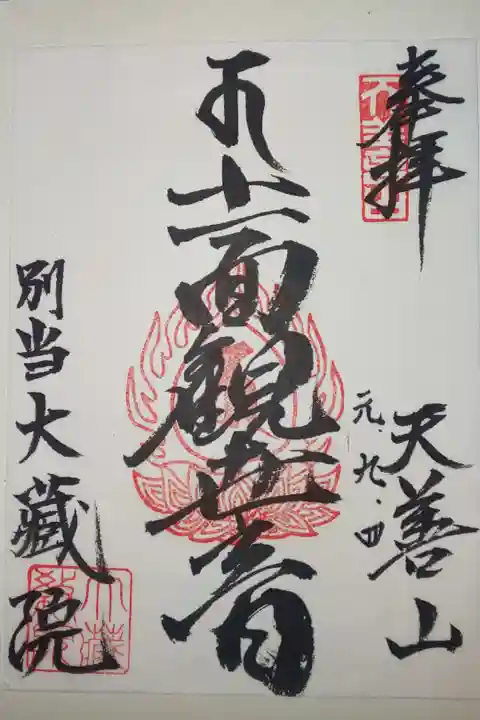 奉拝
天善山
元・九・四
十一面観世音
別当大蔵院